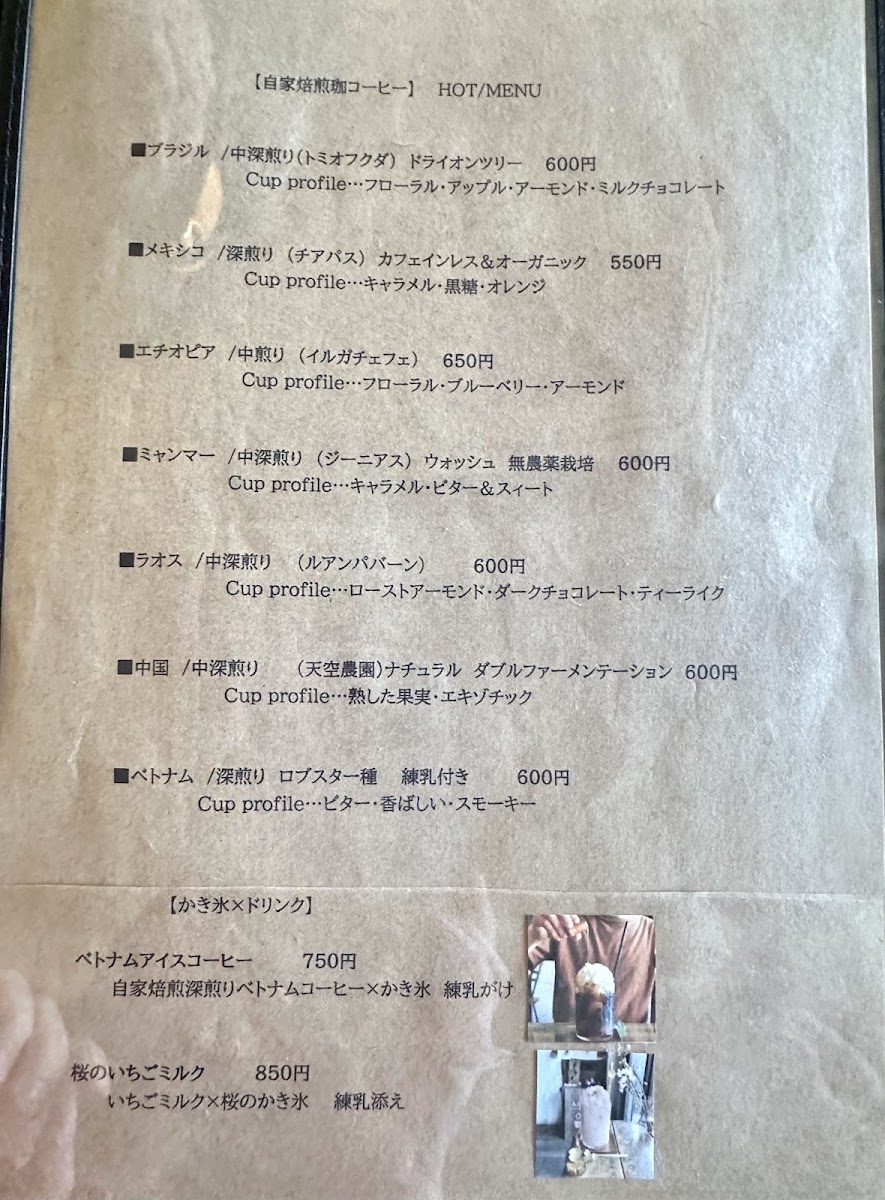 【自家焙煎珈コーヒー】 HOT/MENU
■ブラジル /中深煎り(トミオフクダ) ドライオンツリー 600円
Cup profile…フローラル・アップル・アーモンド・ミルクチョコレート
■メキシコ /深煎り (チアパス) カフェインレス&オーガニック 550円
Cup profile…キャラメル・黒糖・オレンジ
■エチオピア /中煎り (イルガチェフェ) 650円
Cup profile…フローラル・ブルーベリー・アーモンド
■ミャンマー /中深煎り (ジーニアス) ウォッシュ 無農薬栽培 600円
Cup profile…キャラメル・ビター&スィート
■ラオス /中深煎り (ルアンパバーン) 600円
Cup profile…ローストアーモンド・ダークチョコレート・ティーライク
■中国 /中深煎り (天空農園)ナチュラル ダブルファーメンテーション 600円
Cup profile…熟した果実・エキゾチック
■ベトナム /深煎り ロブスター種 練乳付き 600円
Cup profile…ビター・香ばしい・スモーキー
【かき氷×ドリンク】
ベトナムアイスコーヒー 750円
自家焙煎深煎りベトナムコーヒー×かき氷 練乳がけ
桜のいちごミルク 850円
いちごミルク×桜のかき氷 練乳添え